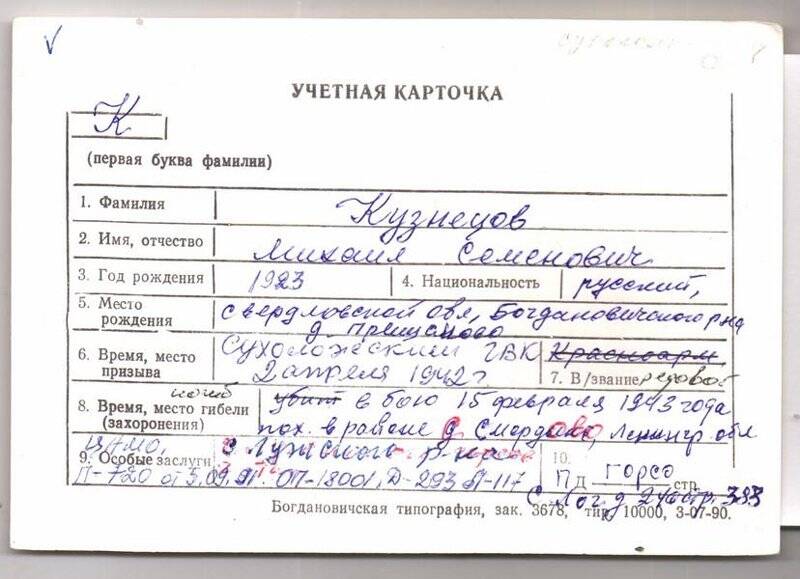 УЧЕТНАЯ КАРТОЧКА
К
(первая буква фамилии)
1. Фамилия Кузнецов
2. Имя, отчество Михаил Семенович
3. Год рождения 1923 4. Национальность русский,
5. Место рождения свердловской обл, Богдановичского р на
д. Прищаново
6. Время, место призыва Сухоложским ГВК
2 апреля 1942 г
Красноарм,
7. В/звание рядовой
погиб
8. Время, место гибели (захоронения) убит в бою 15 февраля 1943 года
пох. в районе д Смердово, Ленингр. обл
ЦАМО,
9. Особые заслуги с Лужского р-на
П-720 от 5.09. ОП-18001, Д-293 Л-117
10.
ПД горсо стр.
С. Лог д 2 стр. 383
Богдановичская типография, зак. 3678, тир. 10000, 3-07-90.